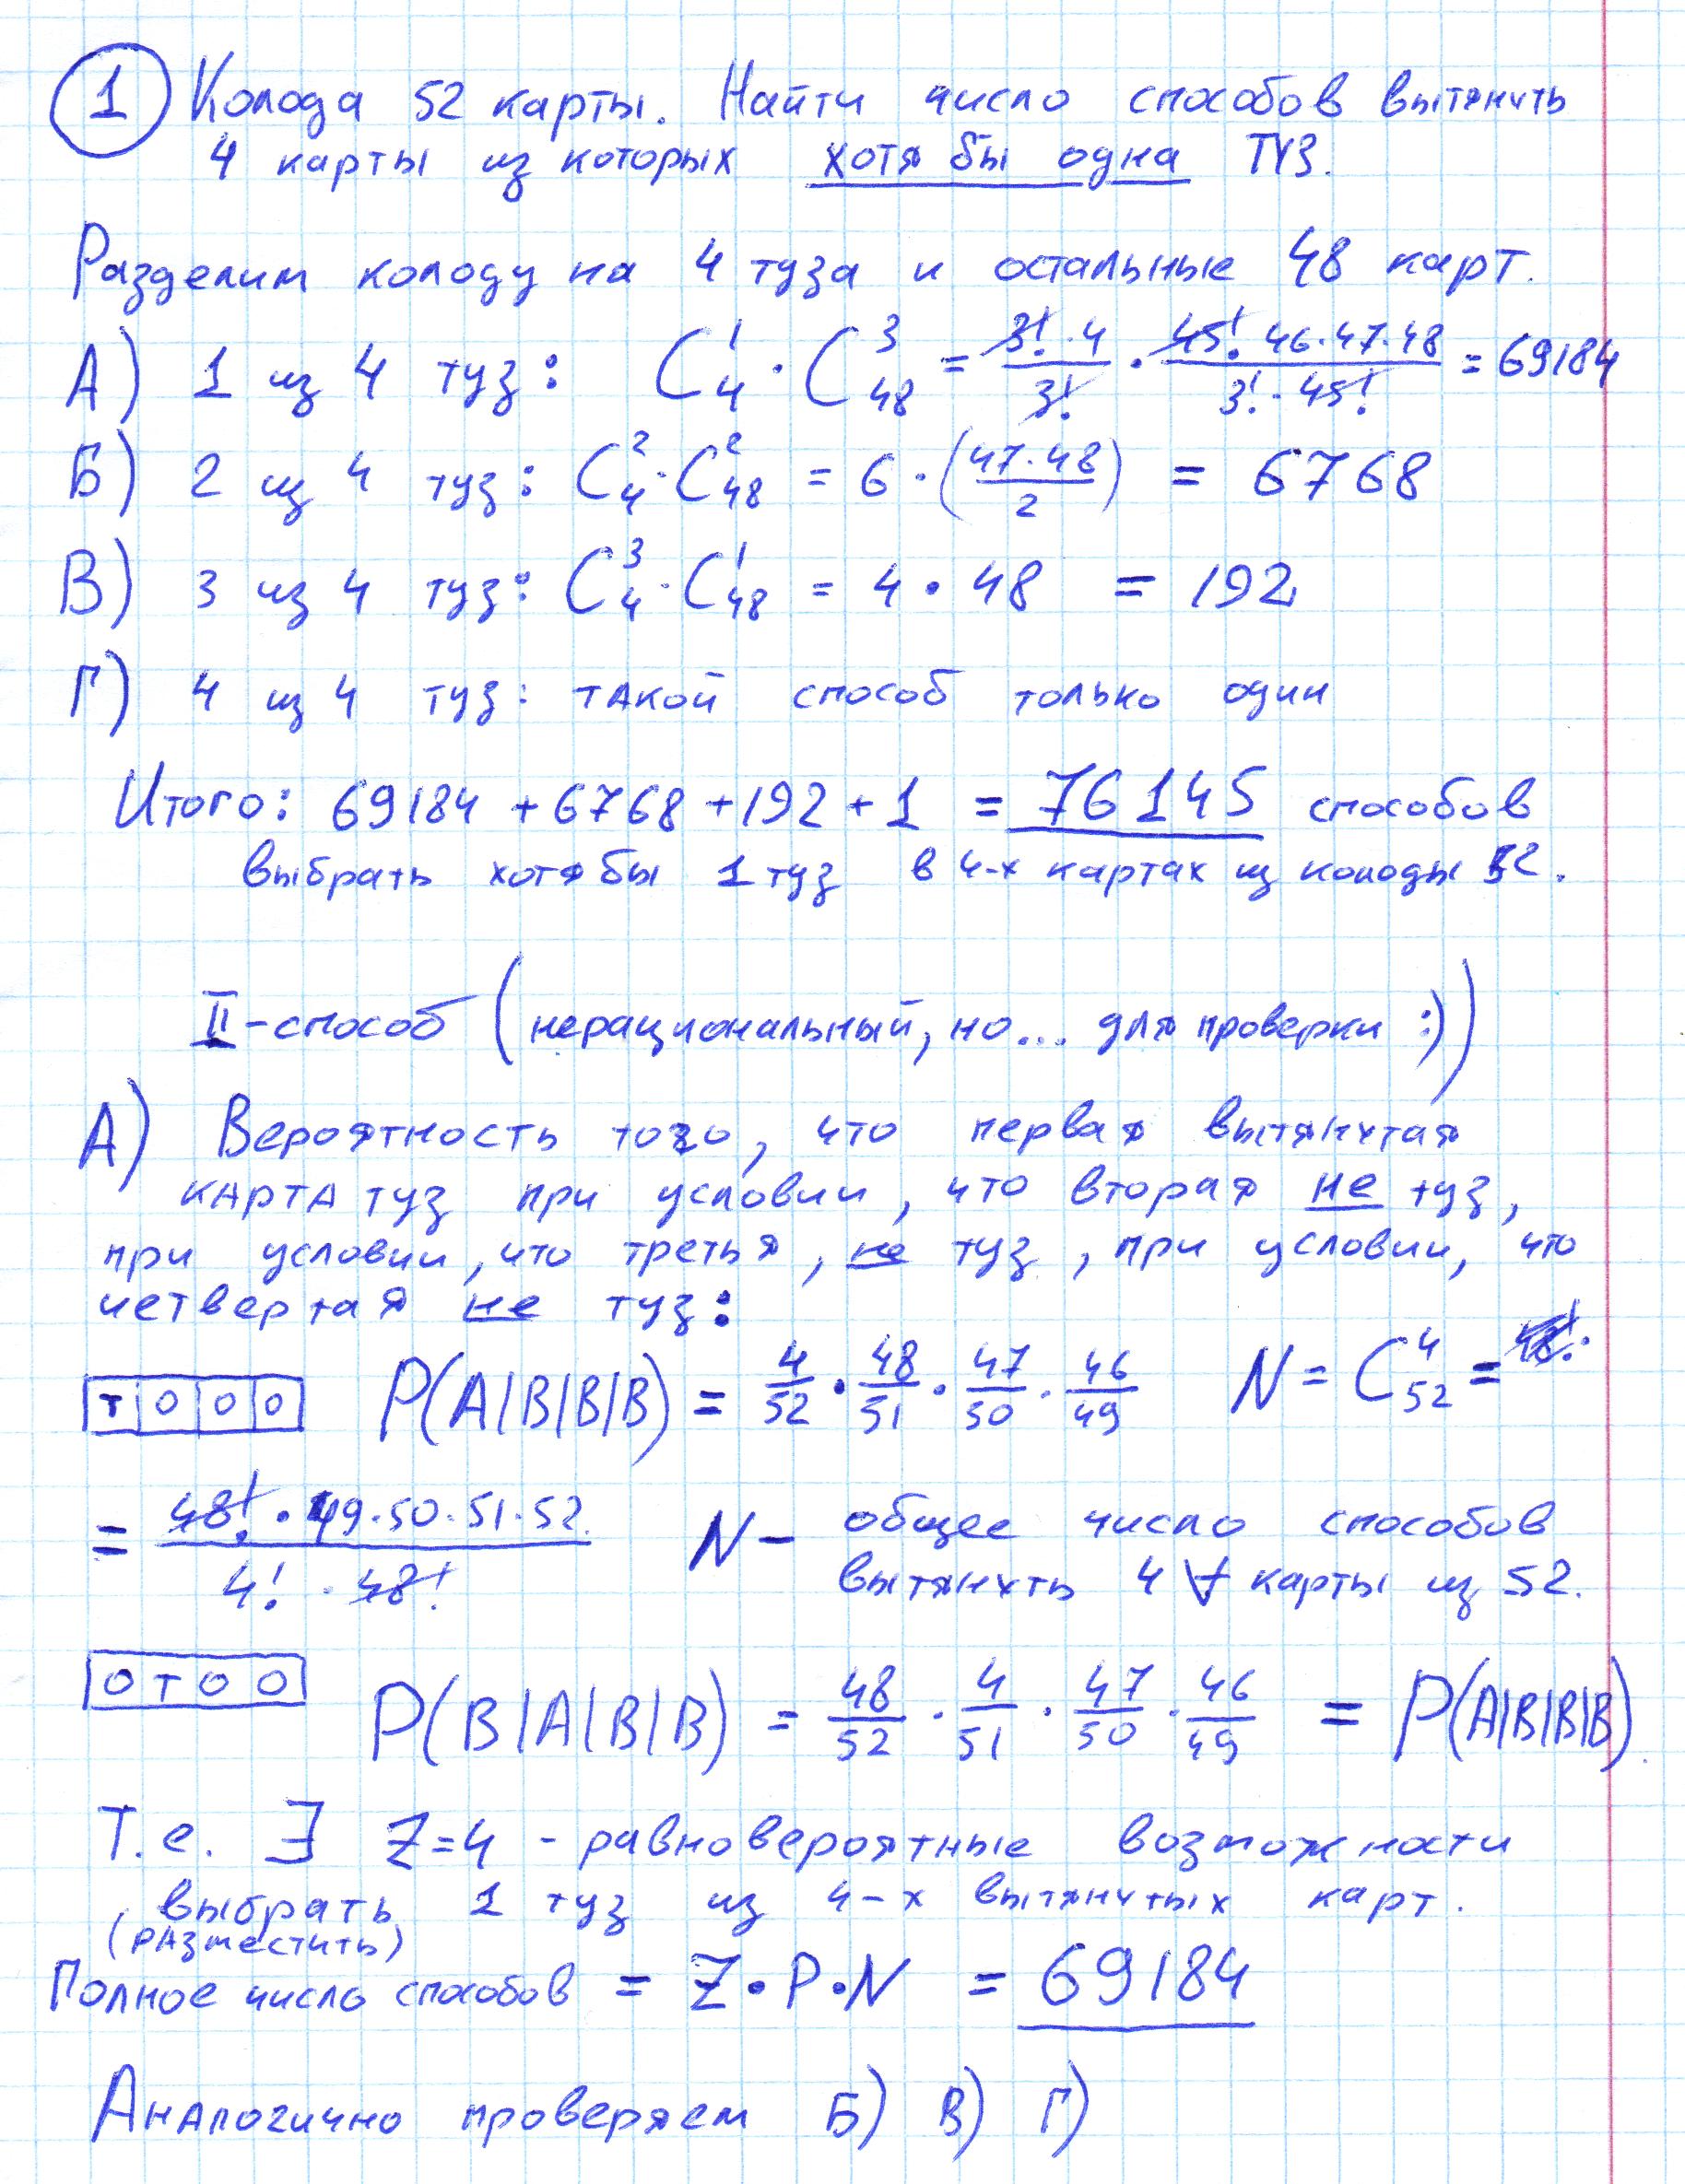 1 Колода 52 карты. Найти число способов вытянуть
4 карты из которых хотя бы одна ТУЗ.
Разделим колоду на 4 туза и остальные 48 карт.
А) 1 из 4 туз: C₄¹ · C₄₈³ = 3!·4/3! · 45!·46·47·48/3!·45! = 69184
Б) 2 из 4 туз: C₄²·C₄₈² = 6·(47·48/2) = 6768
В) 3 из 4 туз: C₄³·C₄₈¹ = 4·48 = 192
Г) 4 из 4 туз: такой способ только один
Итого: 69184 + 6768 + 192 + 1 = 76145 способов
выбрать хотя бы 1 туз в 4-х картах из колоды 52.
II-способ (нерациональный, но... для проверки :))
А) Вероятность того, что первая вытянутая
карта туз при условии, что вторая не туз,
при условии, что третья, не туз, при условии, что
четвертая не туз:
Т О О О P(A|B|B|B) = 4/52 · 48/51 · 47/50 · 46/49 N = C₅₂⁴ =
= 48!·49·50·51·52/4!·48! N – общее число способов
вытянуть 4 ∀ карты из 52.
О Т О О P(B|A|B|B) = 48/52 · 4/51 · 47/50 · 46/49 = P(A|B|B|B).
Т.е. ∃ Z=4 - равновероятные возможности
выбрать 1 туз из 4-х вытянутых карт.
(разместить)
Полное число способов = Z·P·N = 69184
Аналогично проверяем Б) В) Г)